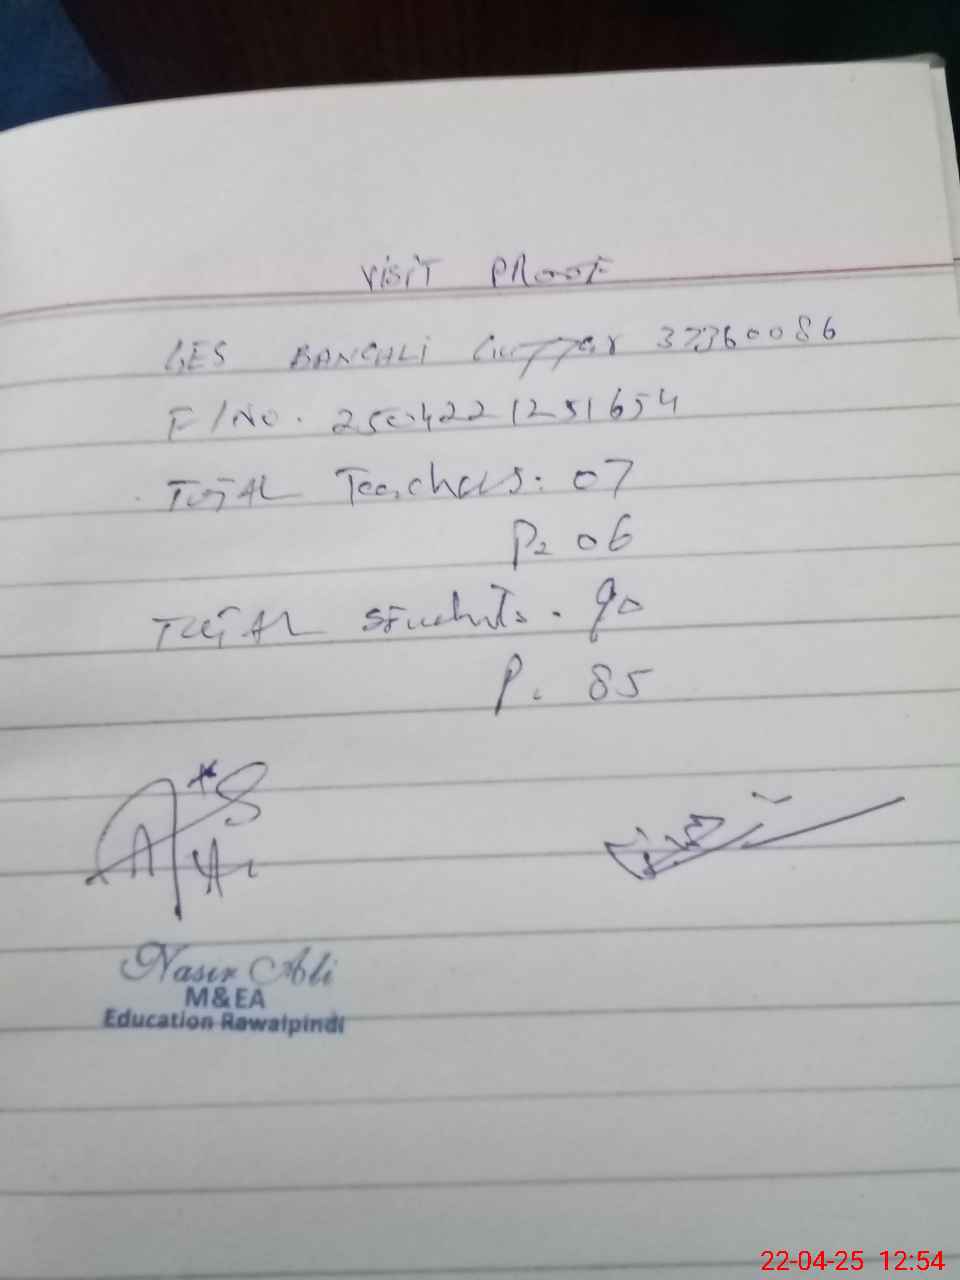 VISIT PROOF
GES BANGALI Gujjar 37360086
F/No. 2504221251654
TOTAL Teachers: 07
P= 06
TOTAL Students. 90
P. 85
Nasir Ali
M&EA
Education Rawalpindi
22-04-25 12:54